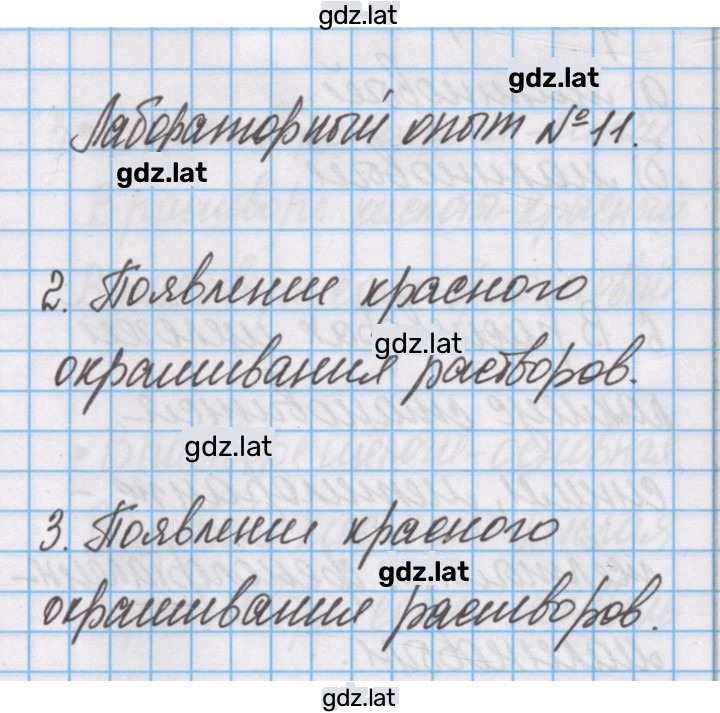 gdz.lat
gdz.lat
Лабораторный опыт №11.
gdz.lat
2. Появление красного
gdz.lat
окрашивания растворов.
gdz.lat
3. Появление красного
gdz.lat
окрашивания растворов.
gdz.lat